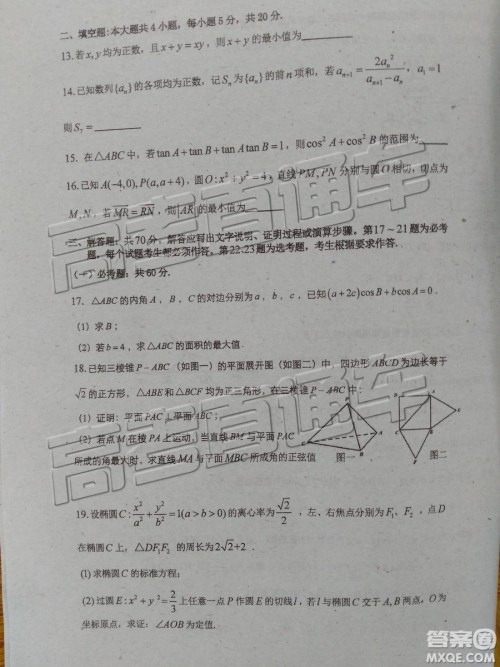 二、填空题:本大题共4小题，每小题5分，共20分.
13.若x,y均为正数，且x+y=xy，则x+y的最小值为________
14.已知数列{aₙ}的各项均为正数，记Sₙ为{aₙ}的前n项和，若 aₙ₊₁ = 2aₙ²/(aₙ₊₁-aₙ)，a₁=1
则S₇=________
15. 在△ABC中，若tanA+tanB+tanAtanB=1，则cos²A+cos²B的范围为
16.已知A(-4,0),P(a,a+4)，圆O:x²+y²=4，直线PM,PN分别与圆O相切，切点为
M,N，若MR=RN，则|AR|的最小值为________
三、解答题：共70分．解答应写出文字说明、证明过程或演算步骤，第17～21题为必考
题，每个试题考生都必须作答．第22,23题为选考题，考生根据要求作答．
(一)必考题：共60分．
17．△ABC的内角A，B，C的对边分别为a，b，c，已知(a+2c)cosB+bcosA=0．
(1)求B；
(2)若b=4，求△ABC的面积的最大值．
18.已知三棱锥P-ABC(如图一)的平面展开图(如图二)中，四边形ABCD为边长等于
√2的正方形，△ABE和△BCF均为正三角形，在三棱锥P-ABC中：
(1)证明：平面PAC⊥平面ABC；
(2)若点M在棱PA上运动，当直线BM与平面PAC
所成的角最大时，求直线MA与平面MBC所成角的正弦值
图一
图二
19.设椭圆C:x²/a²+y²/b²=1(a>b>0)的离心率为√2/2，左、右焦点分别为F₁、F₂，点D
在椭圆C上，△DF₁F₂的周长为2√2+2．
(1)求椭圆C的标准方程；
(2)过圆E:x²+y²=2/3上任意一点P作圆E的切线l，若l与椭圆C交于A,B两点，O为
坐标原点，求证：∠AOB为定值．
高考直通车
高考直通车
答案圈